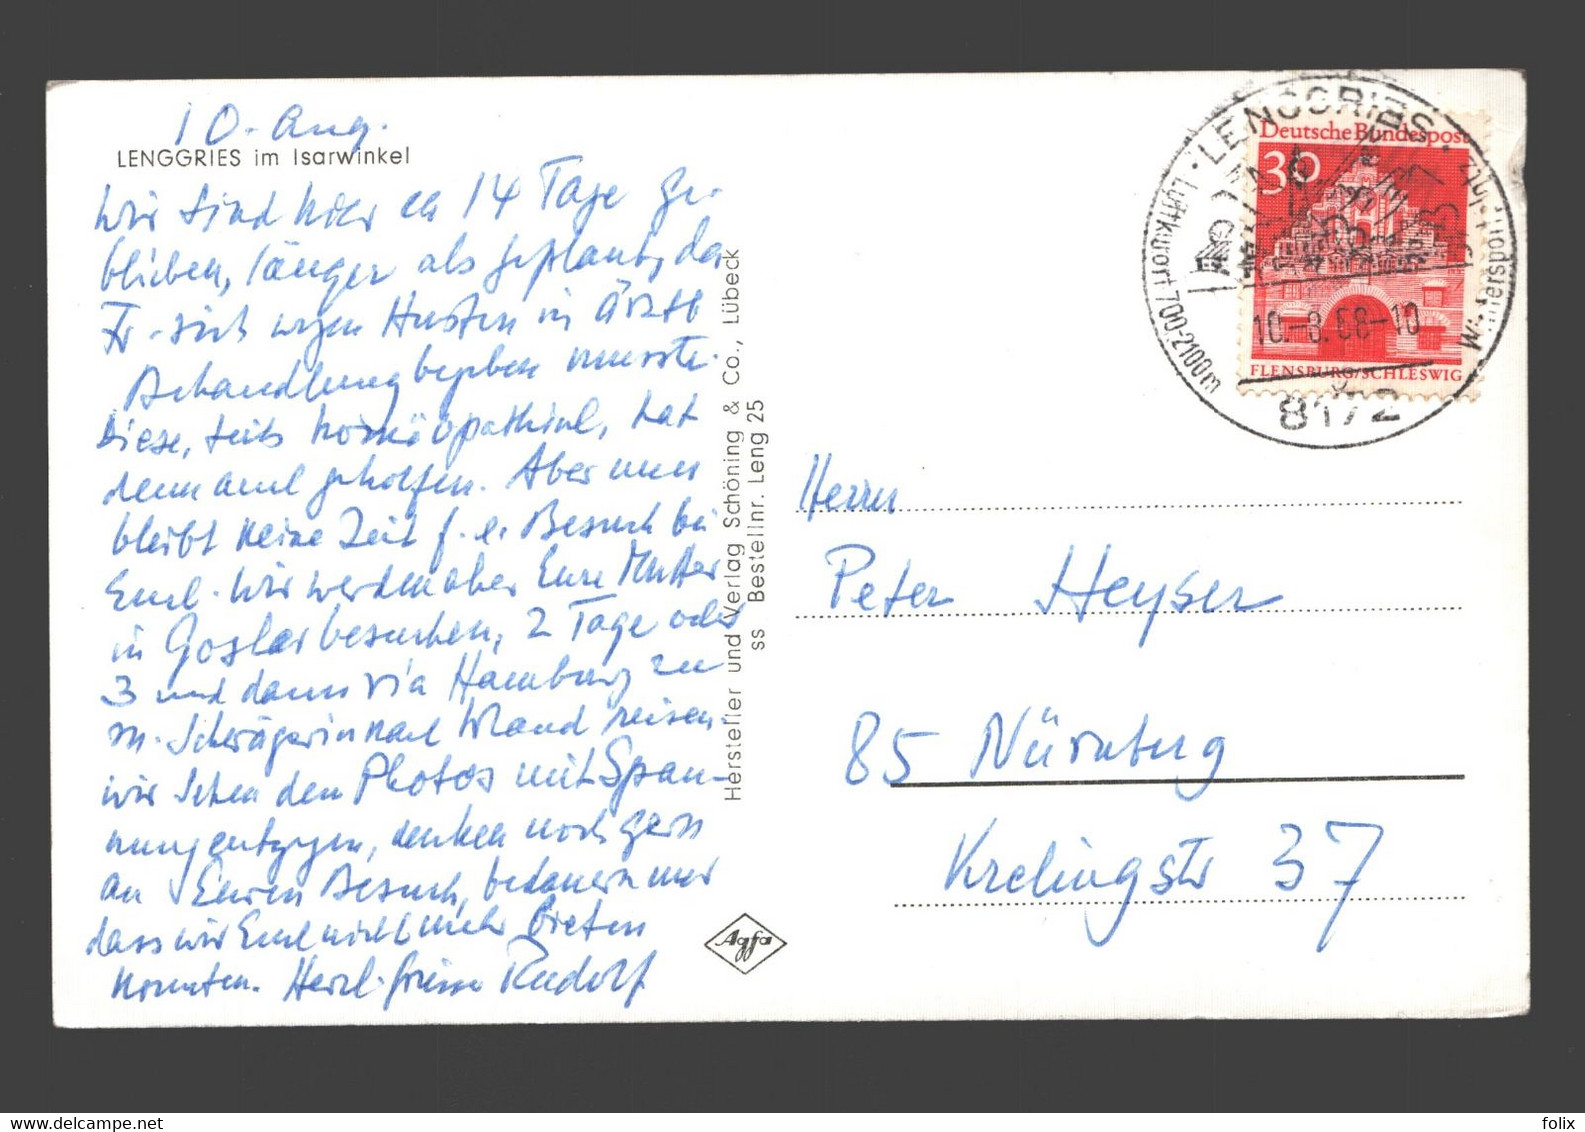 10. Aug.
LENGGRIES im Isarwinkel
Wir sind hier ca 14 Tage ge-
blieben, länger als geplant, da
Fr. sich wegen Husten in ärztl
Behandlung begeben musste.
Diese, teils homöopathisch, hat
denn auch geholfen. Aber nun
bleibt keine Zeit f. e. Besuch bei
Euch. Wir werden aber Eure Mutter
in Goslar besuchen, 2 Tage oder
3 und dann via Hamburg zu
m. Schwägerin nach reisen.
Wir sehen den Photos mit Span-
nung entgegen, denken noch gern
an Euren Besuch, bedauern nur
dass wir Euch nicht mehr bieten
konnten. Herzl. Grüsse Rudolf
Hersteller und Verlag Schöning & Co., Lübeck
ss Bestellnr. Leng 25
Agfa
LENGGRIES
Luftkurort 700-2100m
Wintersportplatz
10.-8.68-10
8172
Deutsche Bundespost
30
FLENSBURG/SCHLESWIG
Herrn
Peter Heyser
85 Nürnberg
Krelingstr 37
folix